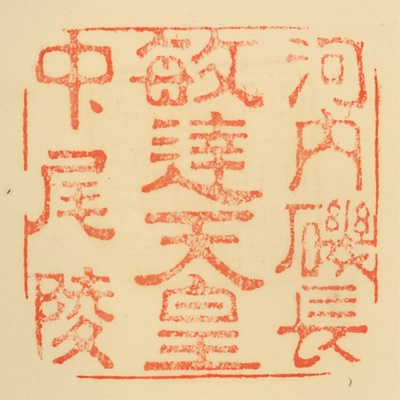 河内磯長
敏達天皇
中尾陵